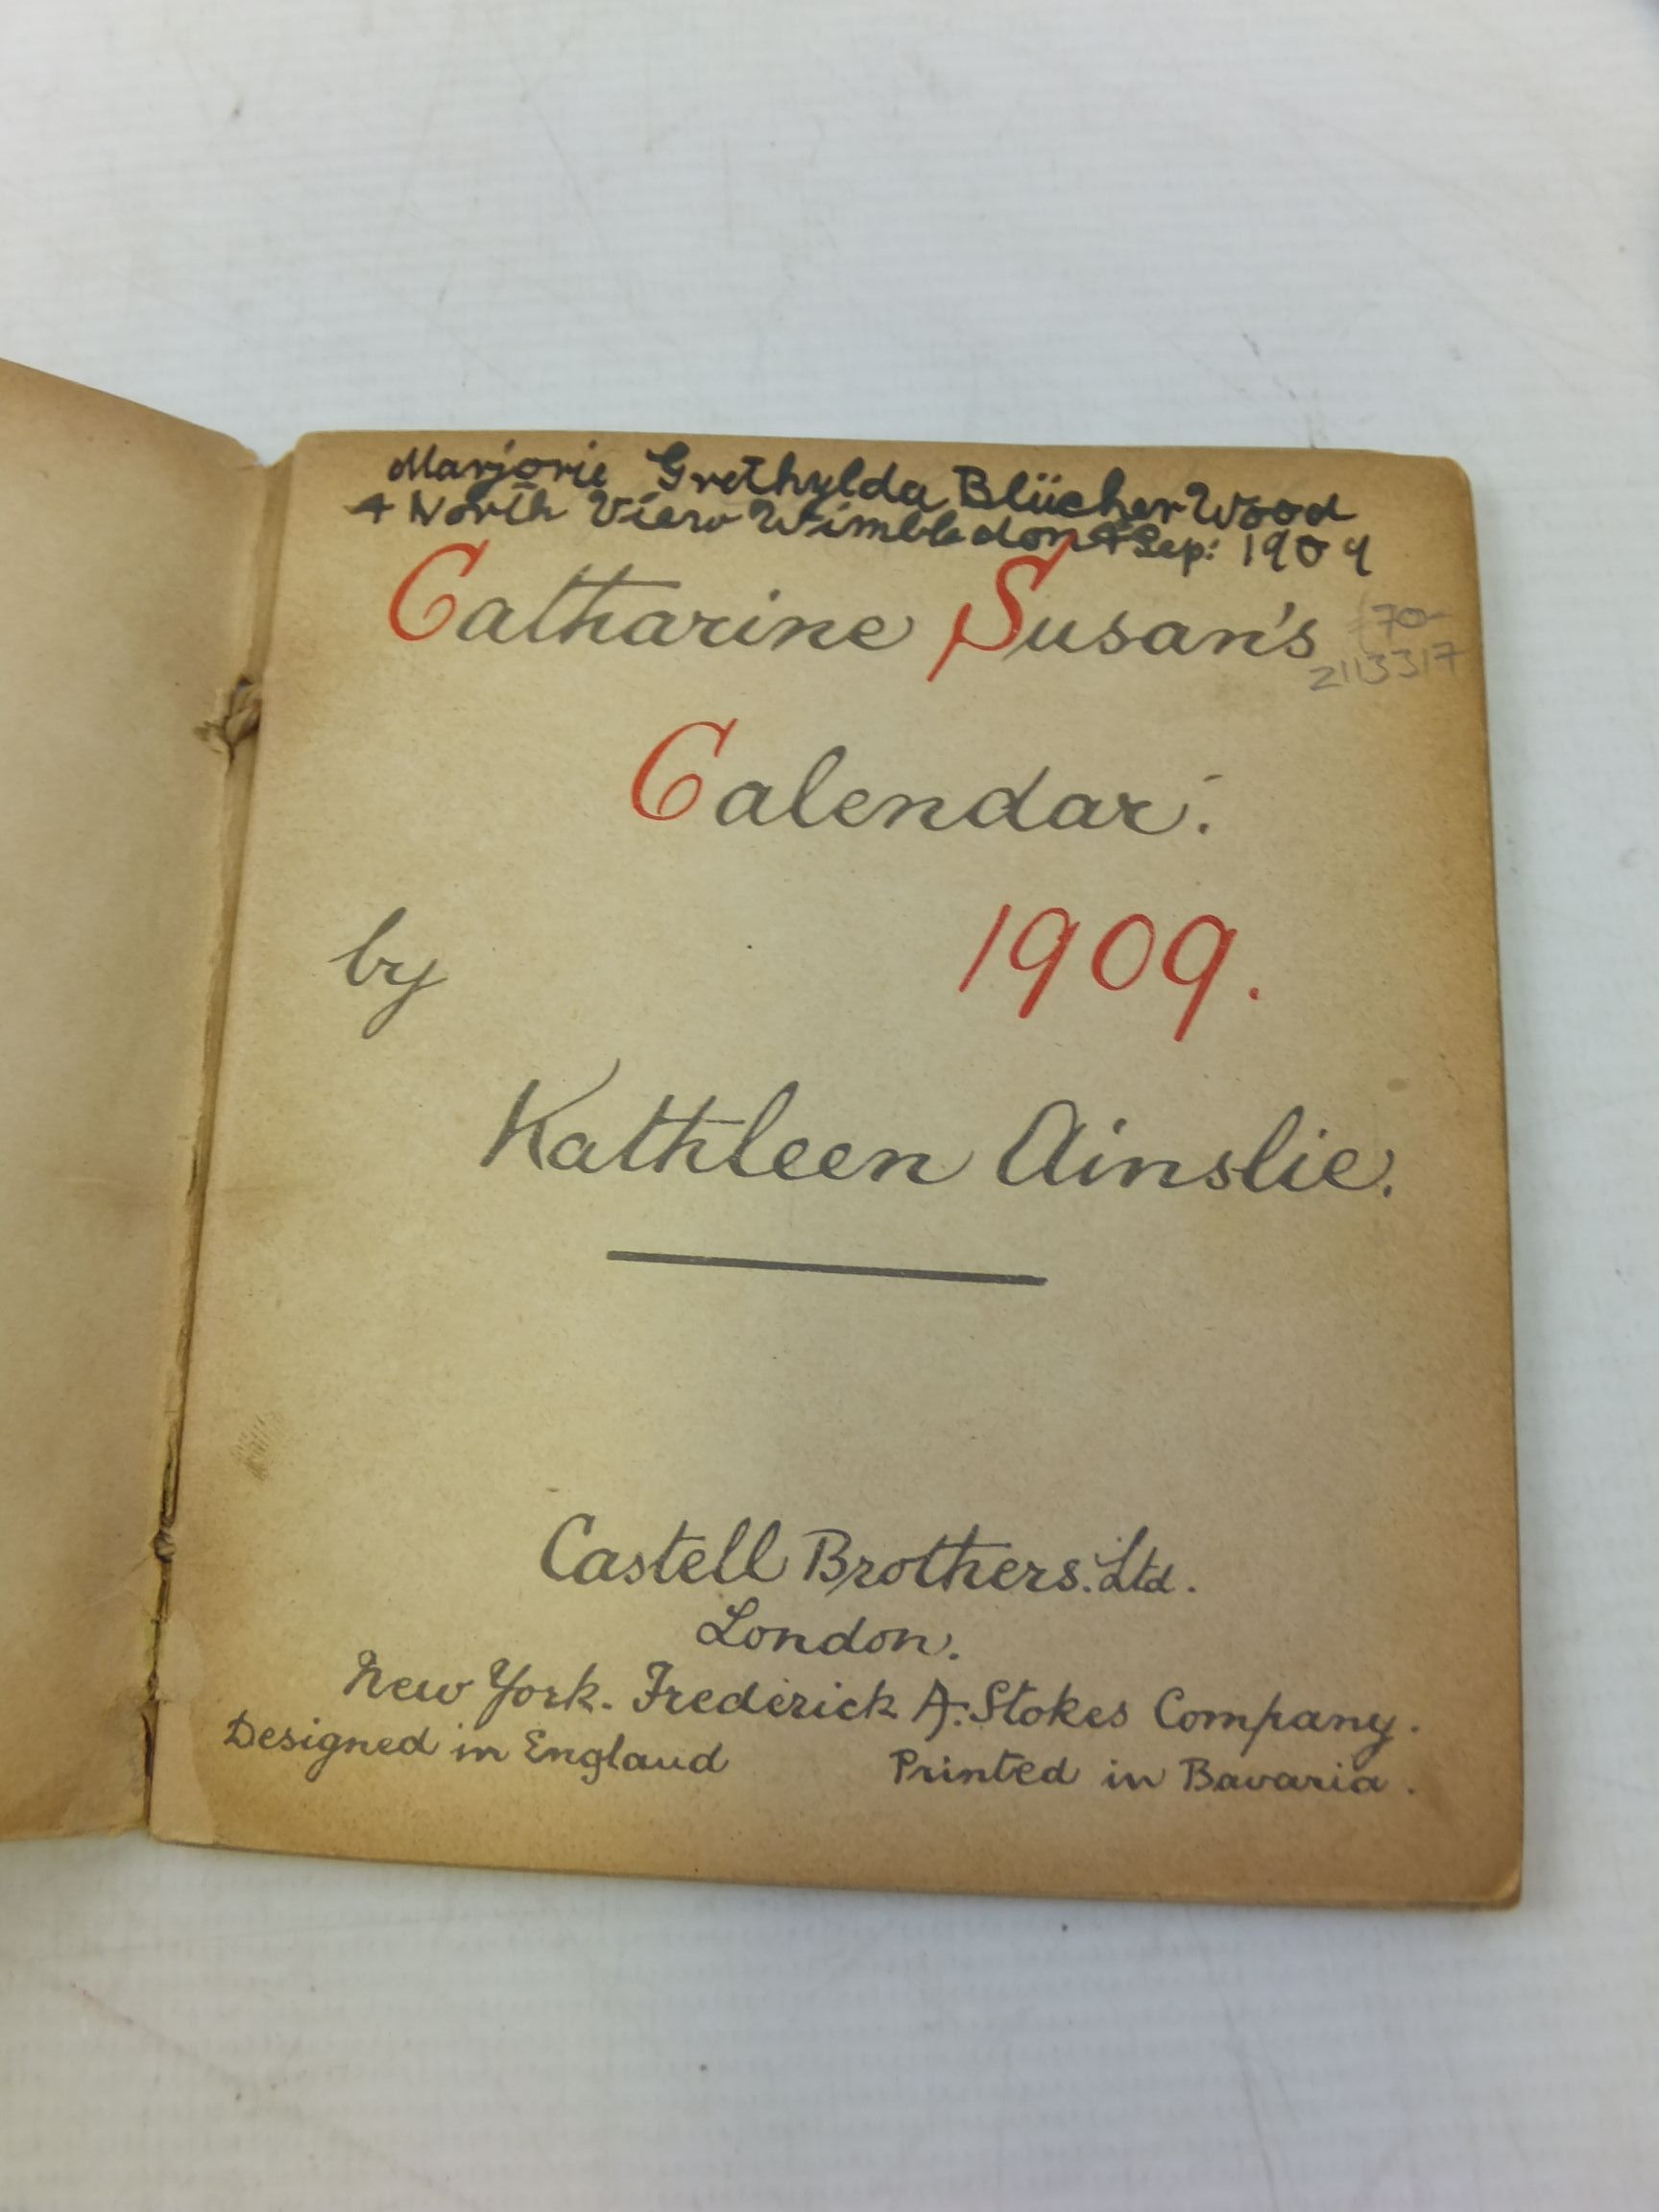 Marjorie Grethylda Blücher Wood
4 North View Wimbledon 4 Sep: 1909
Catharine Susan's
70-
2113317
Calendar:
1909.
by
Kathleen Ainslie.
Castell Brothers. Ltd.
London.
New York. Frederick A. Stokes Company.
Designed in England Printed in Bavaria.